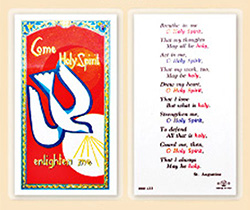 Come
Holy Spirit
enlighten me
Breathe in me
O Holy Spirit,
That my thoughts
May all be holy,
Act in me,
O Holy Spirit,
That my work, too,
May be holy,
Draw my heart,
O Holy Spirit,
That I love
But what is holy,
Strengthen me,
O Holy Spirit,
To defend
All that is holy,
Guard me, then,
O Holy Spirit,
That I always
May be holy.
St. Augustine